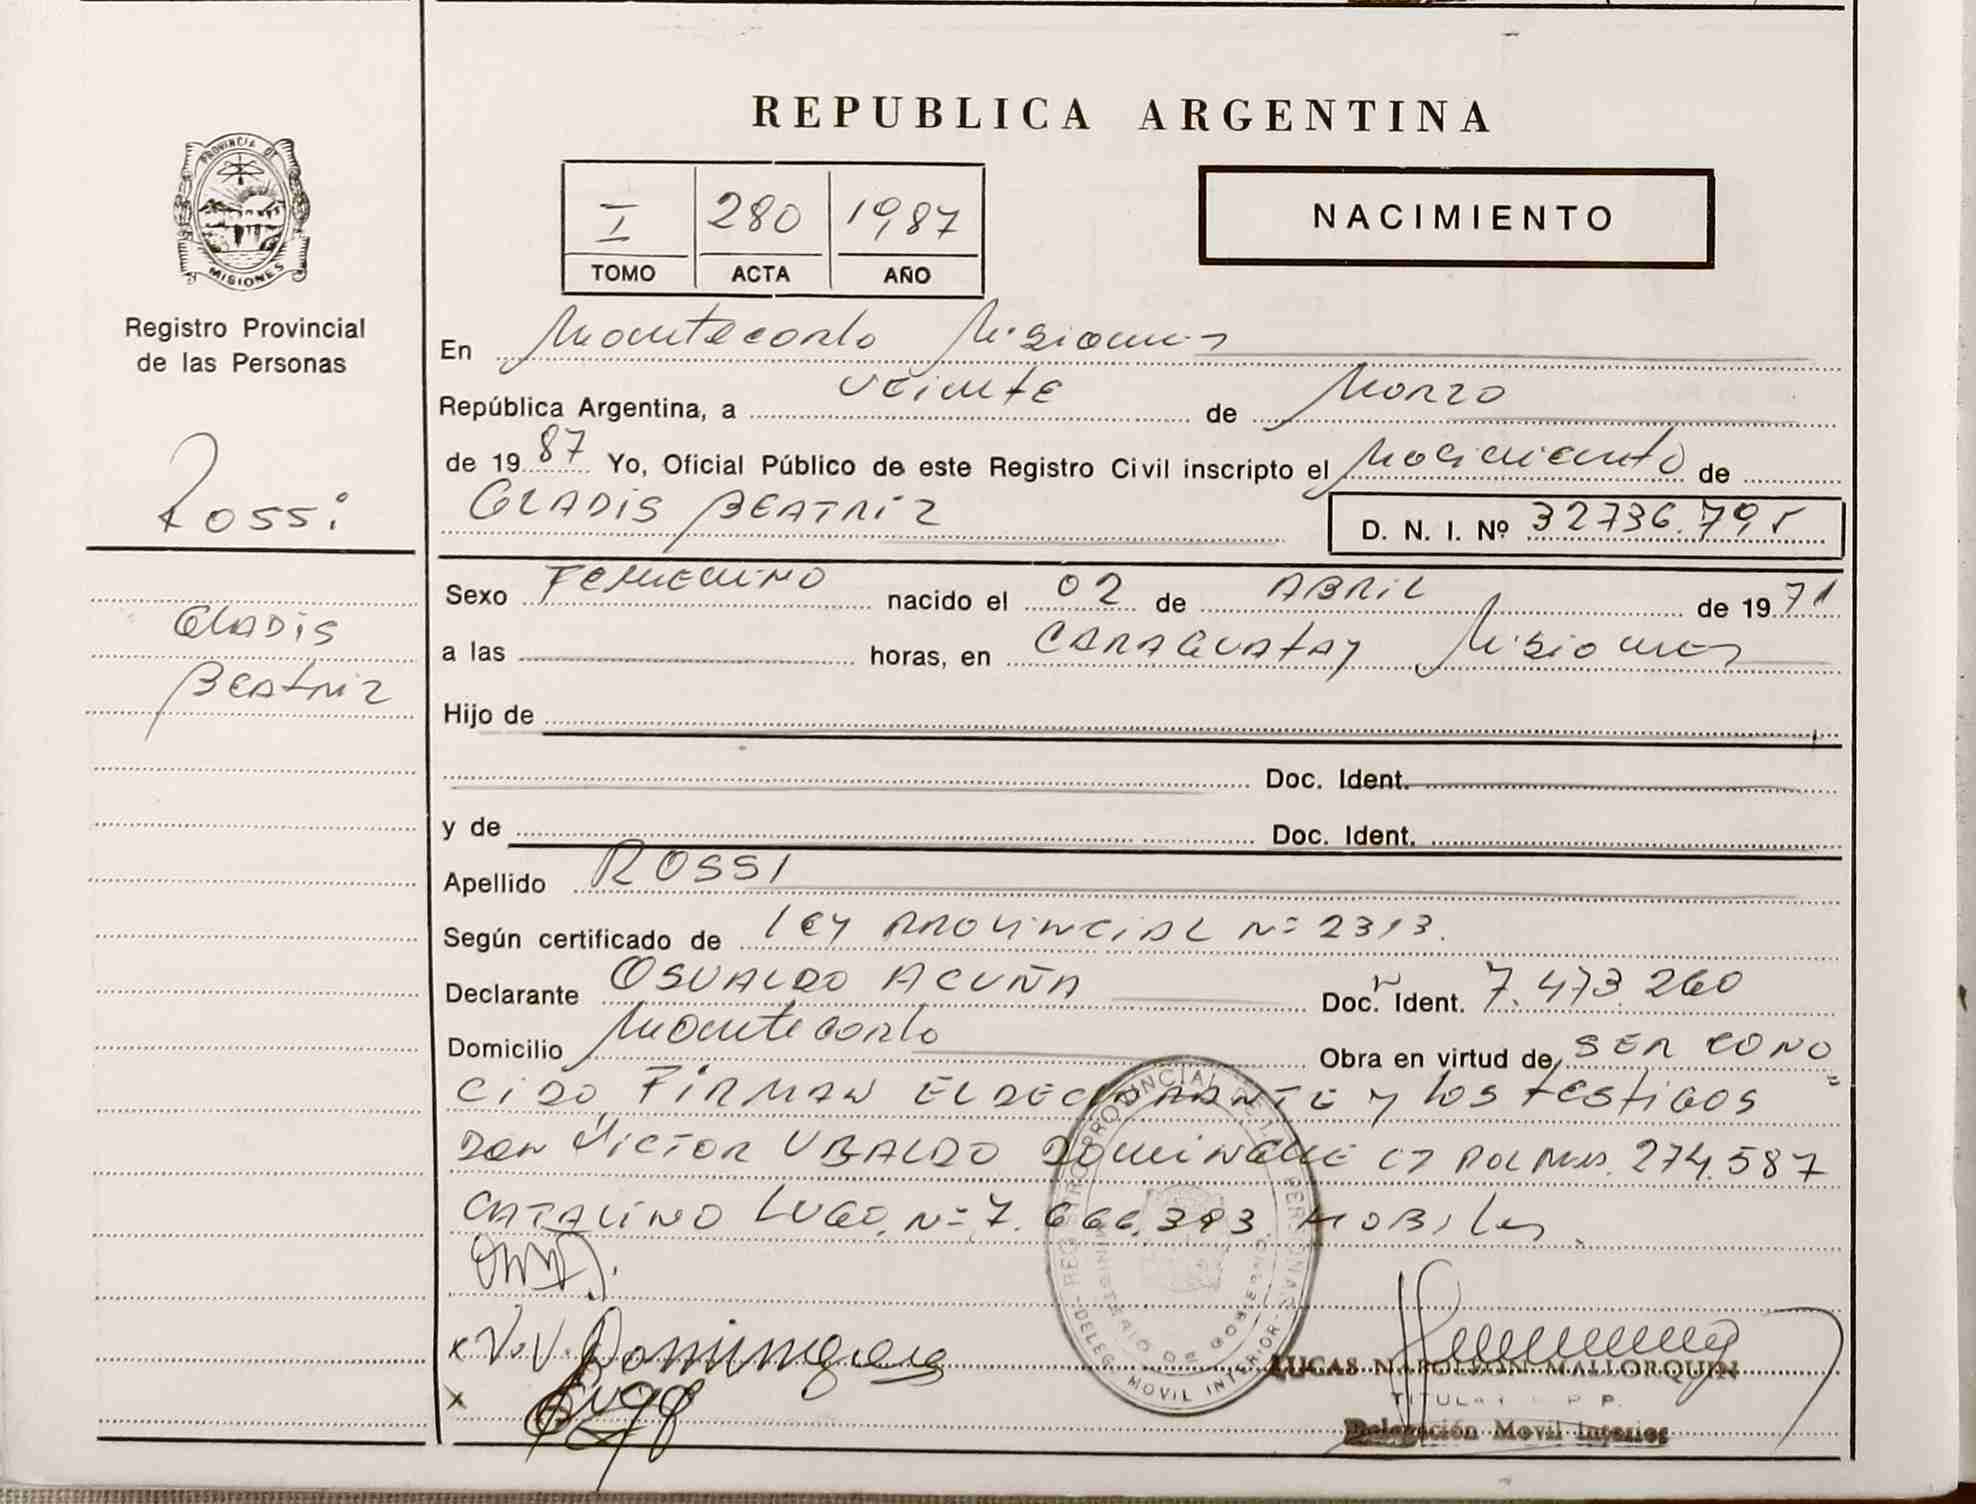 REPUBLICA ARGENTINA
PROVINCIA DE
MISIONES
Registro Provincial
de las Personas
I 280 1987
TOMO ACTA AÑO
NACIMIENTO
En Montecarlo Misiones
República Argentina, a veinte de Marzo
de 1987 Yo, Oficial Público de este Registro Civil inscripto el Nacimiento de
GLADIS BEATRIZ D. N. I. Nº 32736.795
Rossi
Gladis
Beatriz
Sexo Femenino nacido el 02 de ABRIL de 1971
a las horas, en CARAGUATAY Misiones
Hijo de
Doc. Ident.
y de Doc. Ident.
Apellido ROSSI
Según certificado de Ley PROVINCIAL Nº 2313.
Declarante OSVALDO ACUÑA Doc. Ident. 7.473.260
Domicilio Montecarlo Obra en virtud de SER CONO
CIDO, FIRMAN EL DECLARANTE y los testigos
Don Victor UBALDO 274.587
CATALINO LUGO, Nº 7.666.393
V.V. Dominguez
Lugo
REGISTRO PROVINCIAL DE LAS PERSONAS
MINISTERIO DE GOBIERNO
DELEG. MOVIL INTERIOR
LUCAS NAPOLEON MALLORQUIN
TITULAR
Delegación Movil Interior